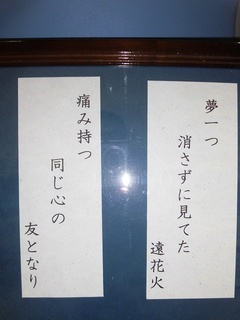 夢一つ
消さずに見てた
遠花火
痛み持つ
同じ心の
友となり